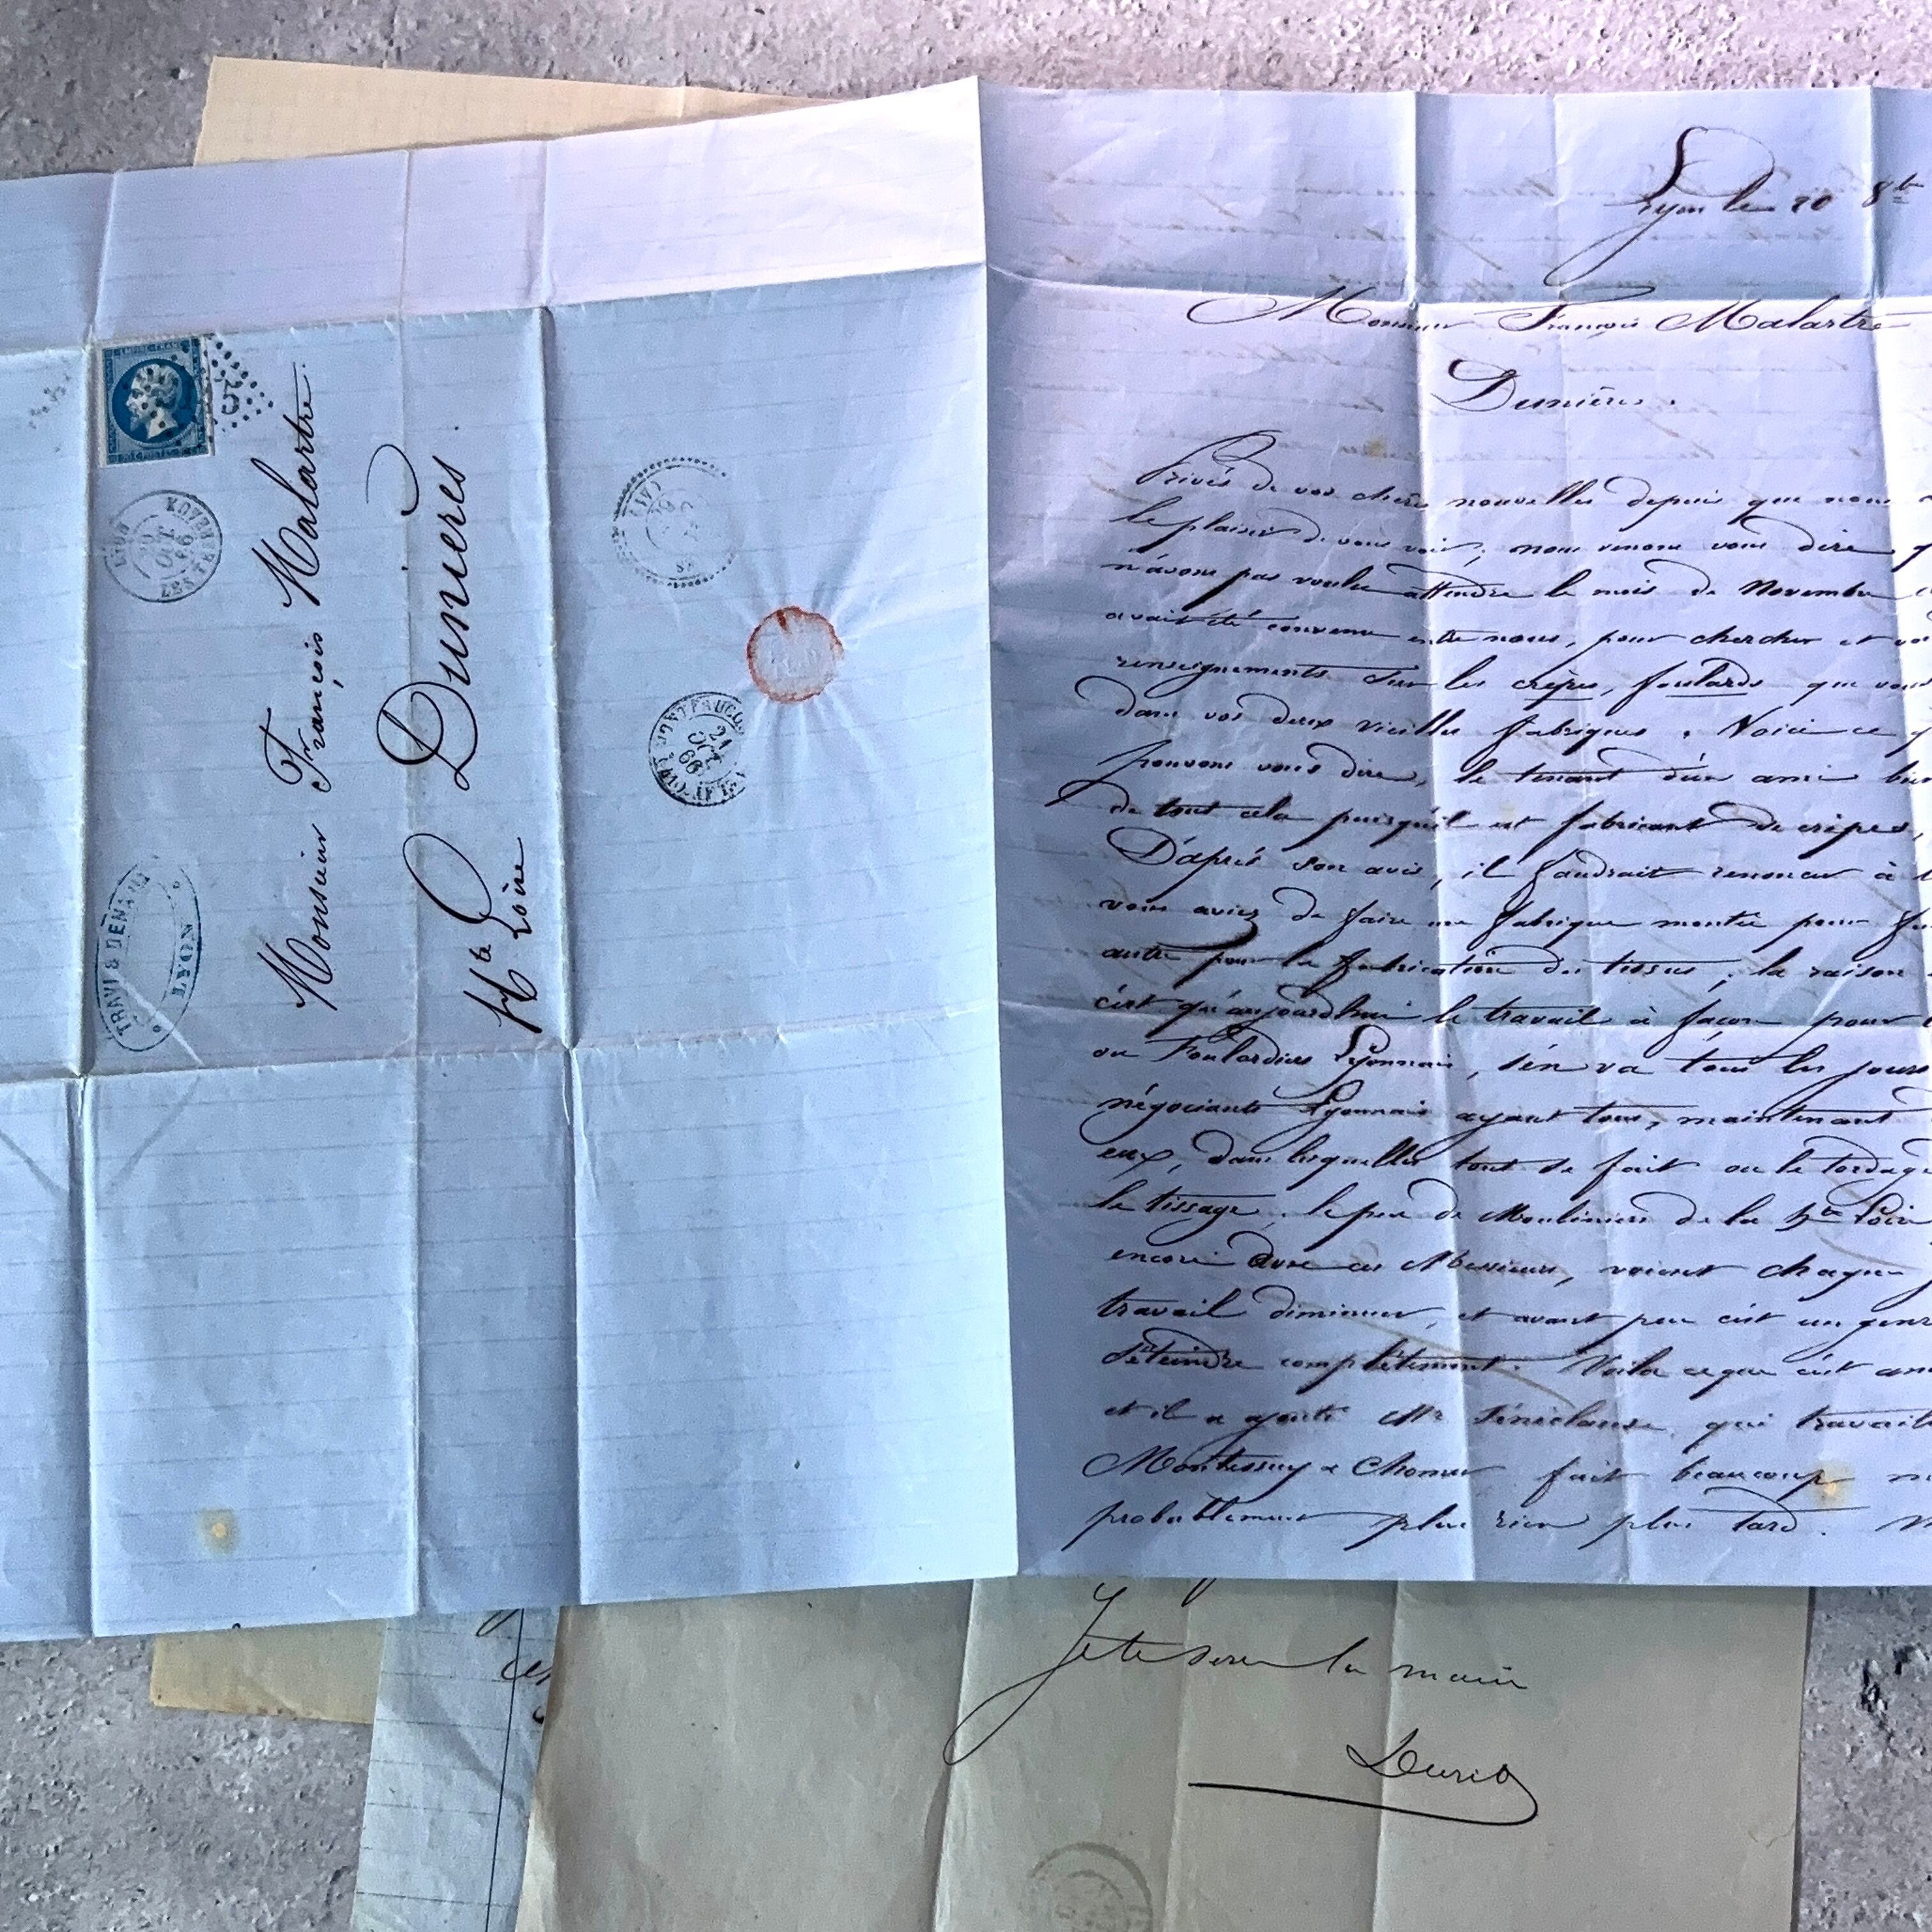 EMPIRE FRANC
5
LYON
20
OCT
66
LES TERREAUX
TRAVI & DENA
LYON
Monsieur François Malartre.
Dunières
Hte Loire
MONTFAUCON
21
OCT
66
Lyon le 20 8bre
Monsieur François Malartre
Dunières.
Privés de vos chères nouvelles depuis que nous
le plaisir de vous voir, nous venons vous dire
n'avons pas voulu attendre le mois de Novembre
avait été convenu entre nous, pour chercher et
renseignements sur les crêpes, foulards que vous
dans vos deux vieilles fabriques. Voici ce
pouvons vous dire, le tenant d'un ami
de tout cela puisqu'il est fabricant de crêpes,
D'après son avis, il faudrait renoncer à
vous aviez de faire une fabrique montée pour
autre pour la fabrication des tissus, la raison
c'est qu'aujourd'hui le travail à façon pour
ou Foulardiers Lyonnais, s'en va tous les jours
négociants Lyonnais ayant tous, maintenant
eux, dans lesquelles tout se fait ou le tordage
le tissage, le peu de Mouliniers de la Hte Loire
encore avec ces Messieurs, voient chaque
travail diminuer, et avant peu c'est un genre
s'éteindre complètement. Voila ce que c'est
et il a ajouté Mr qui travaille
Montessuy & Chomer fait beaucoup
probablement plus rien plus tard.
Je te serre la main